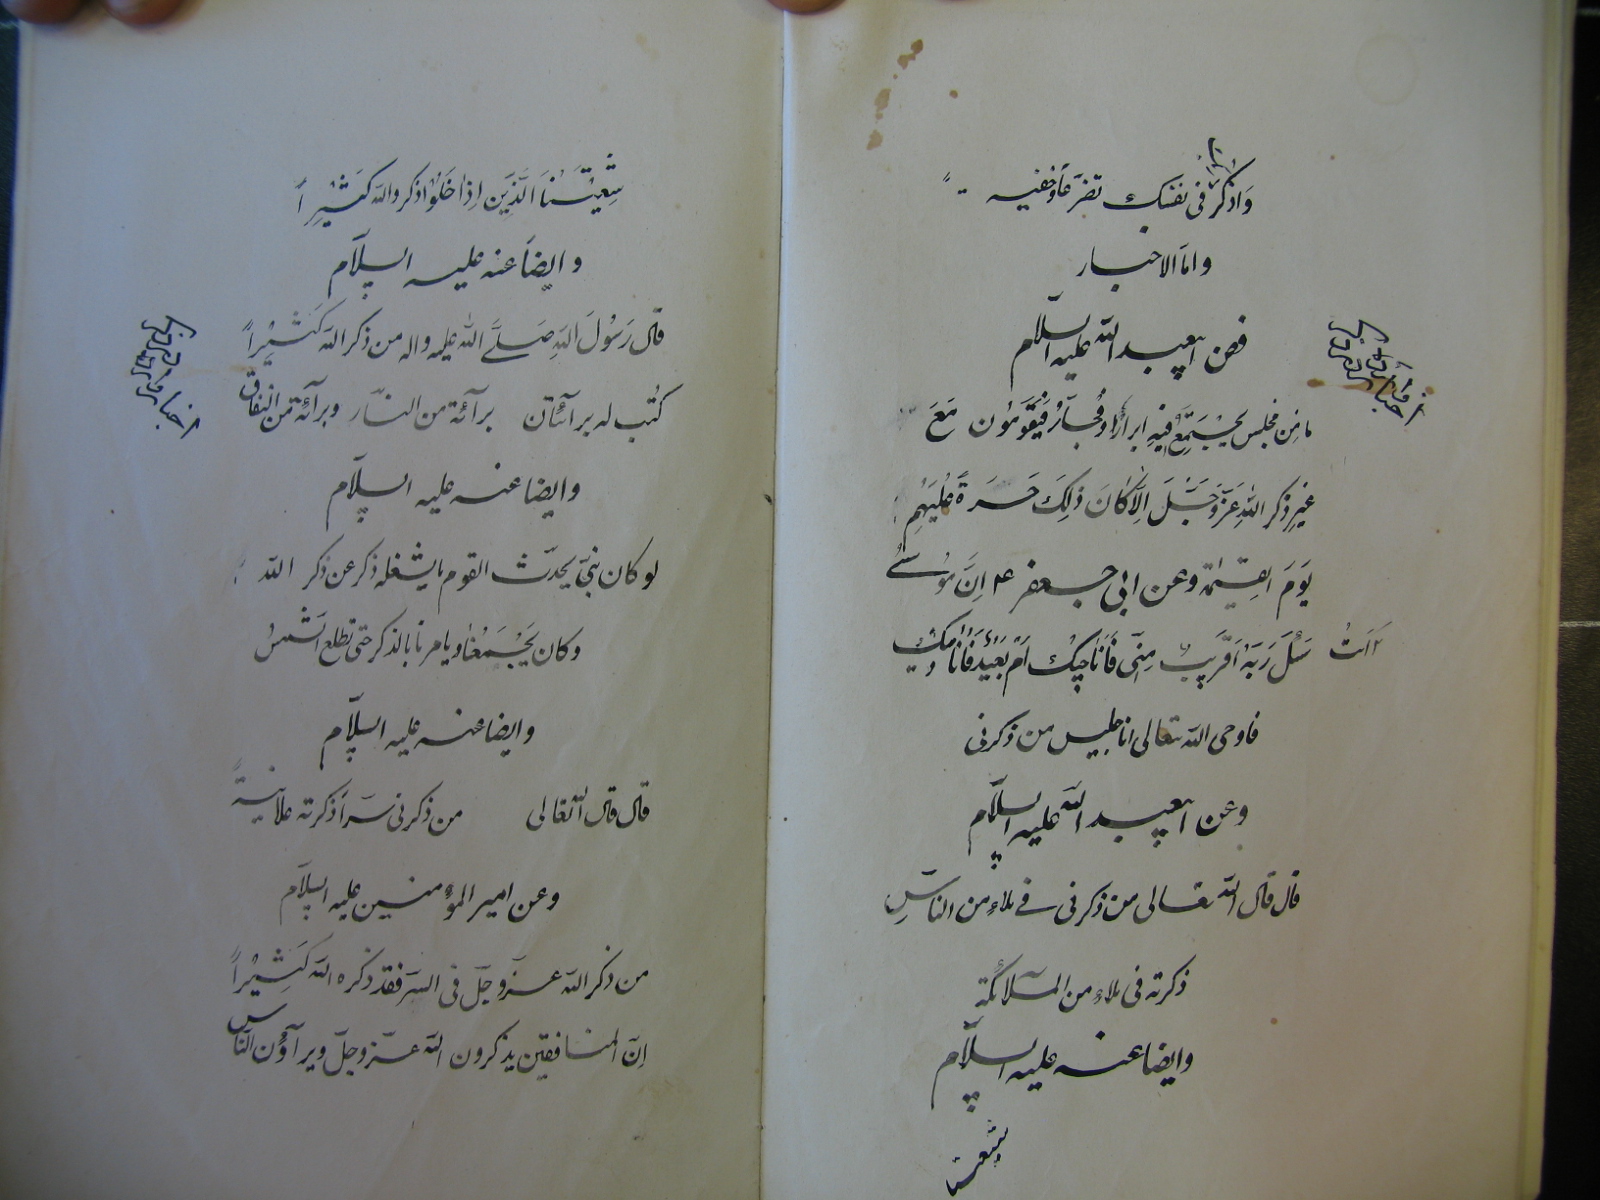 وَاذكر ربّك فی نفسک تضرّعاً وخفیه
واما الاخبار
فعن ابیعبد الله علیه السلام
ما مِن مجلس یَجْتَمِعُ فیهِ ابرارٌ وفُجّارٌ فَیَقُومُون مَعَ
غیرِ ذکر اللهِ عَزّ وَجَلَّ اِلّا کانَ ذلِکَ حَسرَةً عَلَیهِم
یَومَ القِیٰمة وعن ابی جعفر ع اِنَّ مُوسٰی
سَئَلَ رَبَّهُ اَقَریبٌ اَنتَ مِنّی فَاُناجیکَ اَم بَعیدٌ فَاُنادیک
فاوحی الله تعالی انا جلیس من ذکرنی
وعن ابیعبد الله علیه السلام
قال قال الله تعالی من ذکرنی فی ملاء من الناسِ
ذکرته فی ملاء من الملآئکة
وایضا عنه علیه السلام
شیعتنا
شیعَتُنَا الَّذینَ اِذا خَلَوْا ذکروا الله کَثیراً
وایضاً عنه علیه السلام
قال رَسُولَ اللهِ صَلَّی الله علیه واله من ذکر الله کَثیراً
کتُب له برآئتان برآئة من النّار وبرآئة من النفاق
وایضا عنه علیه السلام
لو کان بنیّ یحدّث القوم مایشغله ذکر عن ذکر الله
وکان یَجْمَعُنا ویامرنا بالذکر حتی تطلع الشمسُ
وایضا عنه علیه السلام
قال قال الله تعالی من ذکرنی سرّاً ذکرته علانیةً
وعن امیر المؤمنین علیه السلام
من ذکر الله عزّوجلّ فی السر فقد ذکره الله کَثیراً
اِنّ المنافقین یذکرون الله عزّوجلّ ویرآؤن الناس